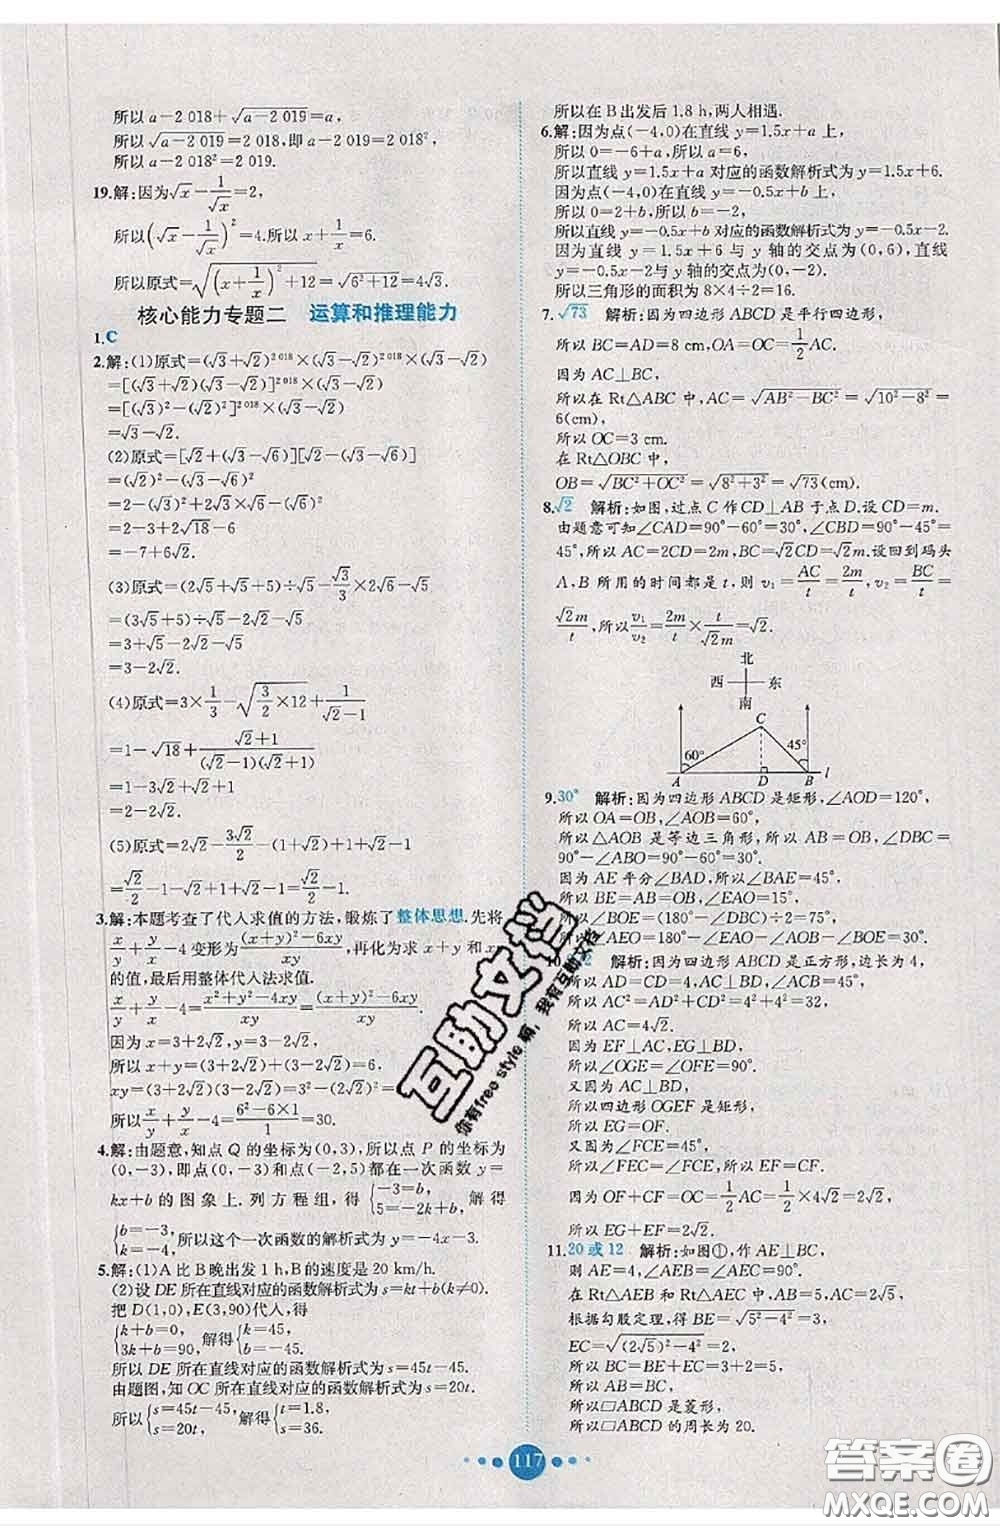 所以 a－2 018＋√(a－2 019)＝a，
所以√(a－2 019)＝2 018，即 a－2 019＝2 018²，
所以 a－2 018²＝2 019.
19.解：因为√x－1/√x＝2，
所以(√x－1/√x)²＝4.所以 x＋1/x＝6.
所以原式＝√((x＋1/x)²＋12)＝√(6²＋12)＝4√3.
核心能力专题二 运算和推理能力
1.C
2.解：(1)原式＝(√3＋√2)^2 018×(√3－√2)^2 018×(√3－√2)
＝[(√3＋√2)(√3－√2)]^2 018×(√3－√2)
＝[(√3)²－(√2)²]^2 018×(√3－√2)
＝√3－√2.
(2)原式＝[√2＋(√3－√6)][√2－(√3－√6)]
＝(√2)²－(√3－√6)²
＝2－(√3)²＋2√3×√6－(√6)²
＝2－3＋2√18－6
＝－7＋6√2.
(3)原式＝(2√5＋√5＋5)÷√5－√3/3×2√6－√5
＝(3√5＋5)÷√5－2√2－√5
＝3＋√5－2√2－√5
＝3－2√2.
(4)原式＝3×1/3－√(3/2×12)＋1/(√2－1)
＝1－√18＋(√2＋1)/((√2－1)(√2＋1))
＝1－3√2＋√2＋1
＝2－2√2.
(5)原式＝2√2－3√2/2－(1＋√2)＋1＋√2－1
＝√2/2－1－√2＋1＋√2－1＝√2/2－1.
3.解：本题考查了代入求值的方法，锻炼了整体思想.先将
x/y＋y/x－4 变形为((x＋y)²－6xy)/xy，再化为求 x＋y 和 xy
的值，最后用整体代入法求值.
x/y＋y/x－4＝(x²＋y²－4xy)/xy＝((x＋y)²－6xy)/xy.
因为 x＝3＋2√2，y＝3－2√2，
所以 x＋y＝(3＋2√2)＋(3－2√2)＝6，
xy＝(3＋2√2)(3－2√2)＝3²－(2√2)²＝1.
所以x/y＋y/x－4＝(6²－6×1)/1＝30.
4.解：由题意，知点 Q 的坐标为(0，3)，所以点 P 的坐标为
(0，－3)，即点(0，－3)和点(－2，5)都在一次函数 y＝
kx＋b 的图象上.列方程组，得{－3＝b，5＝－2k＋b，解得
{b＝－3，k＝－4，所以这个一次函数的解析式为 y＝－4x－3.
5.解：(1)A 比 B 晚出发 1 h，B 的速度是 20 km/h.
(2)设 DE 所在直线对应的函数解析式为 s＝kt＋b(k≠0).
把 D(1，0)，E(3，90)代入，得
{k＋b＝0，3k＋b＝90，解得{k＝45，b＝－45.
所以 DE 所在直线对应的函数解析式为 s＝45t－45.
由题图，知 OC 所在直线对应的函数解析式为 s＝20t.
所以{s＝45t－45，s＝20t，解得{t＝1.8，s＝36.
所以在 B 出发后 1.8 h，两人相遇.
6.解：因为点(－4，0)在直线 y＝1.5x＋a 上，
所以 0＝－6＋a，所以 a＝6，
所以直线 y＝1.5x＋a 对应的函数解析式为 y＝1.5x＋6.
因为点(－4，0)在直线 y＝－0.5x＋b 上，
所以 0＝2＋b，所以 b＝－2，
所以直线 y＝－0.5x＋b 对应的函数解析式为 y＝－0.5x－2.
因为直线 y＝1.5x＋6 与 y 轴的交点为(0，6)，直线
y＝－0.5x－2 与 y 轴的交点为(0，－2)，
所以三角形的面积为 8×4÷2＝16.
7.√73 解析：因为四边形 ABCD 是平行四边形，
所以 BC＝AD＝8 cm，OA＝OC＝1/2AC.
因为 AC⊥BC，
所以在 Rt△ABC 中，AC＝√(AB²－BC²)＝√(10²－8²)＝
6(cm)，
所以 OC＝3 cm.
在 Rt△OBC 中，
OB＝√(BC²＋OC²)＝√(8²＋3²)＝√73(cm).
8.√2 解析：如图，过点 C 作 CD⊥AB 于点 D.设 CD＝m.
由题意可知∠CAD＝90°－60°＝30°，∠CBD＝90°－45°＝
45°，所以 AC＝2CD＝2m，BC＝√2CD＝√2m.设回到码头
A，B 所用的时间都是 t，则 v₁＝AC/t＝2m/t，v₂＝BC/t＝
√2m/t，所以v₁/v₂＝2m/t×t/√2m＝√2.
北
西 东
南
C
60° 45°
A D B l
9.30° 解析：因为四边形 ABCD 是矩形，∠AOD＝120°，
所以 OA＝OB，∠AOB＝60°，
所以△AOB 是等边三角形，所以 AB＝OB，∠DBC＝
90°－∠ABO＝90°－60°＝30°.
因为 AE 平分∠BAD，所以∠BAE＝45°，
所以 BE＝BA＝BO，∠AEO＝45°，
所以∠BOE＝(180°－∠DBC)÷2＝75°，
所以∠AEO＝180°－∠OAE－∠AOB－∠BOE＝30°.
10. 解析：因为四边形 ABCD 是正方形，边长为 4，
所以 AD＝CD＝4，AC⊥BD，∠ACB＝45°，
所以 AC²＝AD²＋CD²＝4²＋4²＝32，
所以 AC＝4√2.
因为 EF⊥AC，EG⊥BD，
所以∠OGE＝∠OFE＝90°.
又因为 AC⊥BD，
所以四边形 OGEF 是矩形，
所以 EG＝OF.
又因为∠FCE＝45°，
所以∠FEC＝∠FCE，所以 EF＝CF.
因为 OF＋CF＝OC＝1/2AC＝1/2×4√2＝2√2，
所以 EG＋EF＝2√2.
11.20 或 12 解析：如图①，作 AE⊥BC，
则 AE＝4，∠AEB＝∠AEC＝90°.
在 Rt△AEB 和 Rt△AEC 中，AB＝5，AC＝2√5，
根据勾股定理，得 BE＝√(5²－4²)＝3，
EC＝√((2√5)²－4²)＝2，
所以 BC＝BE＋EC＝3＋2＝5，
所以 AB＝BC，
所以▱ABCD 是菱形，
所以▱ABCD 的周长为 20.
117
互助文档
你有free style 嘛，我有互助文档
答案圈
MXQE.COM